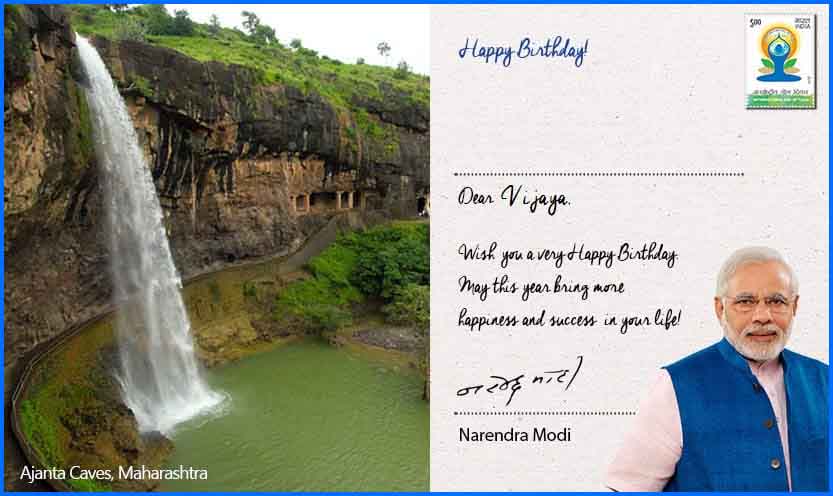 Happy Birthday!
5.00 भारत
INDIA
Dear Vijaya,
Wish you a very Happy Birthday.
May this year bring more
happiness and success in your life!
नरेन्द्र मोदी
Narendra Modi
Ajanta Caves, Maharashtra